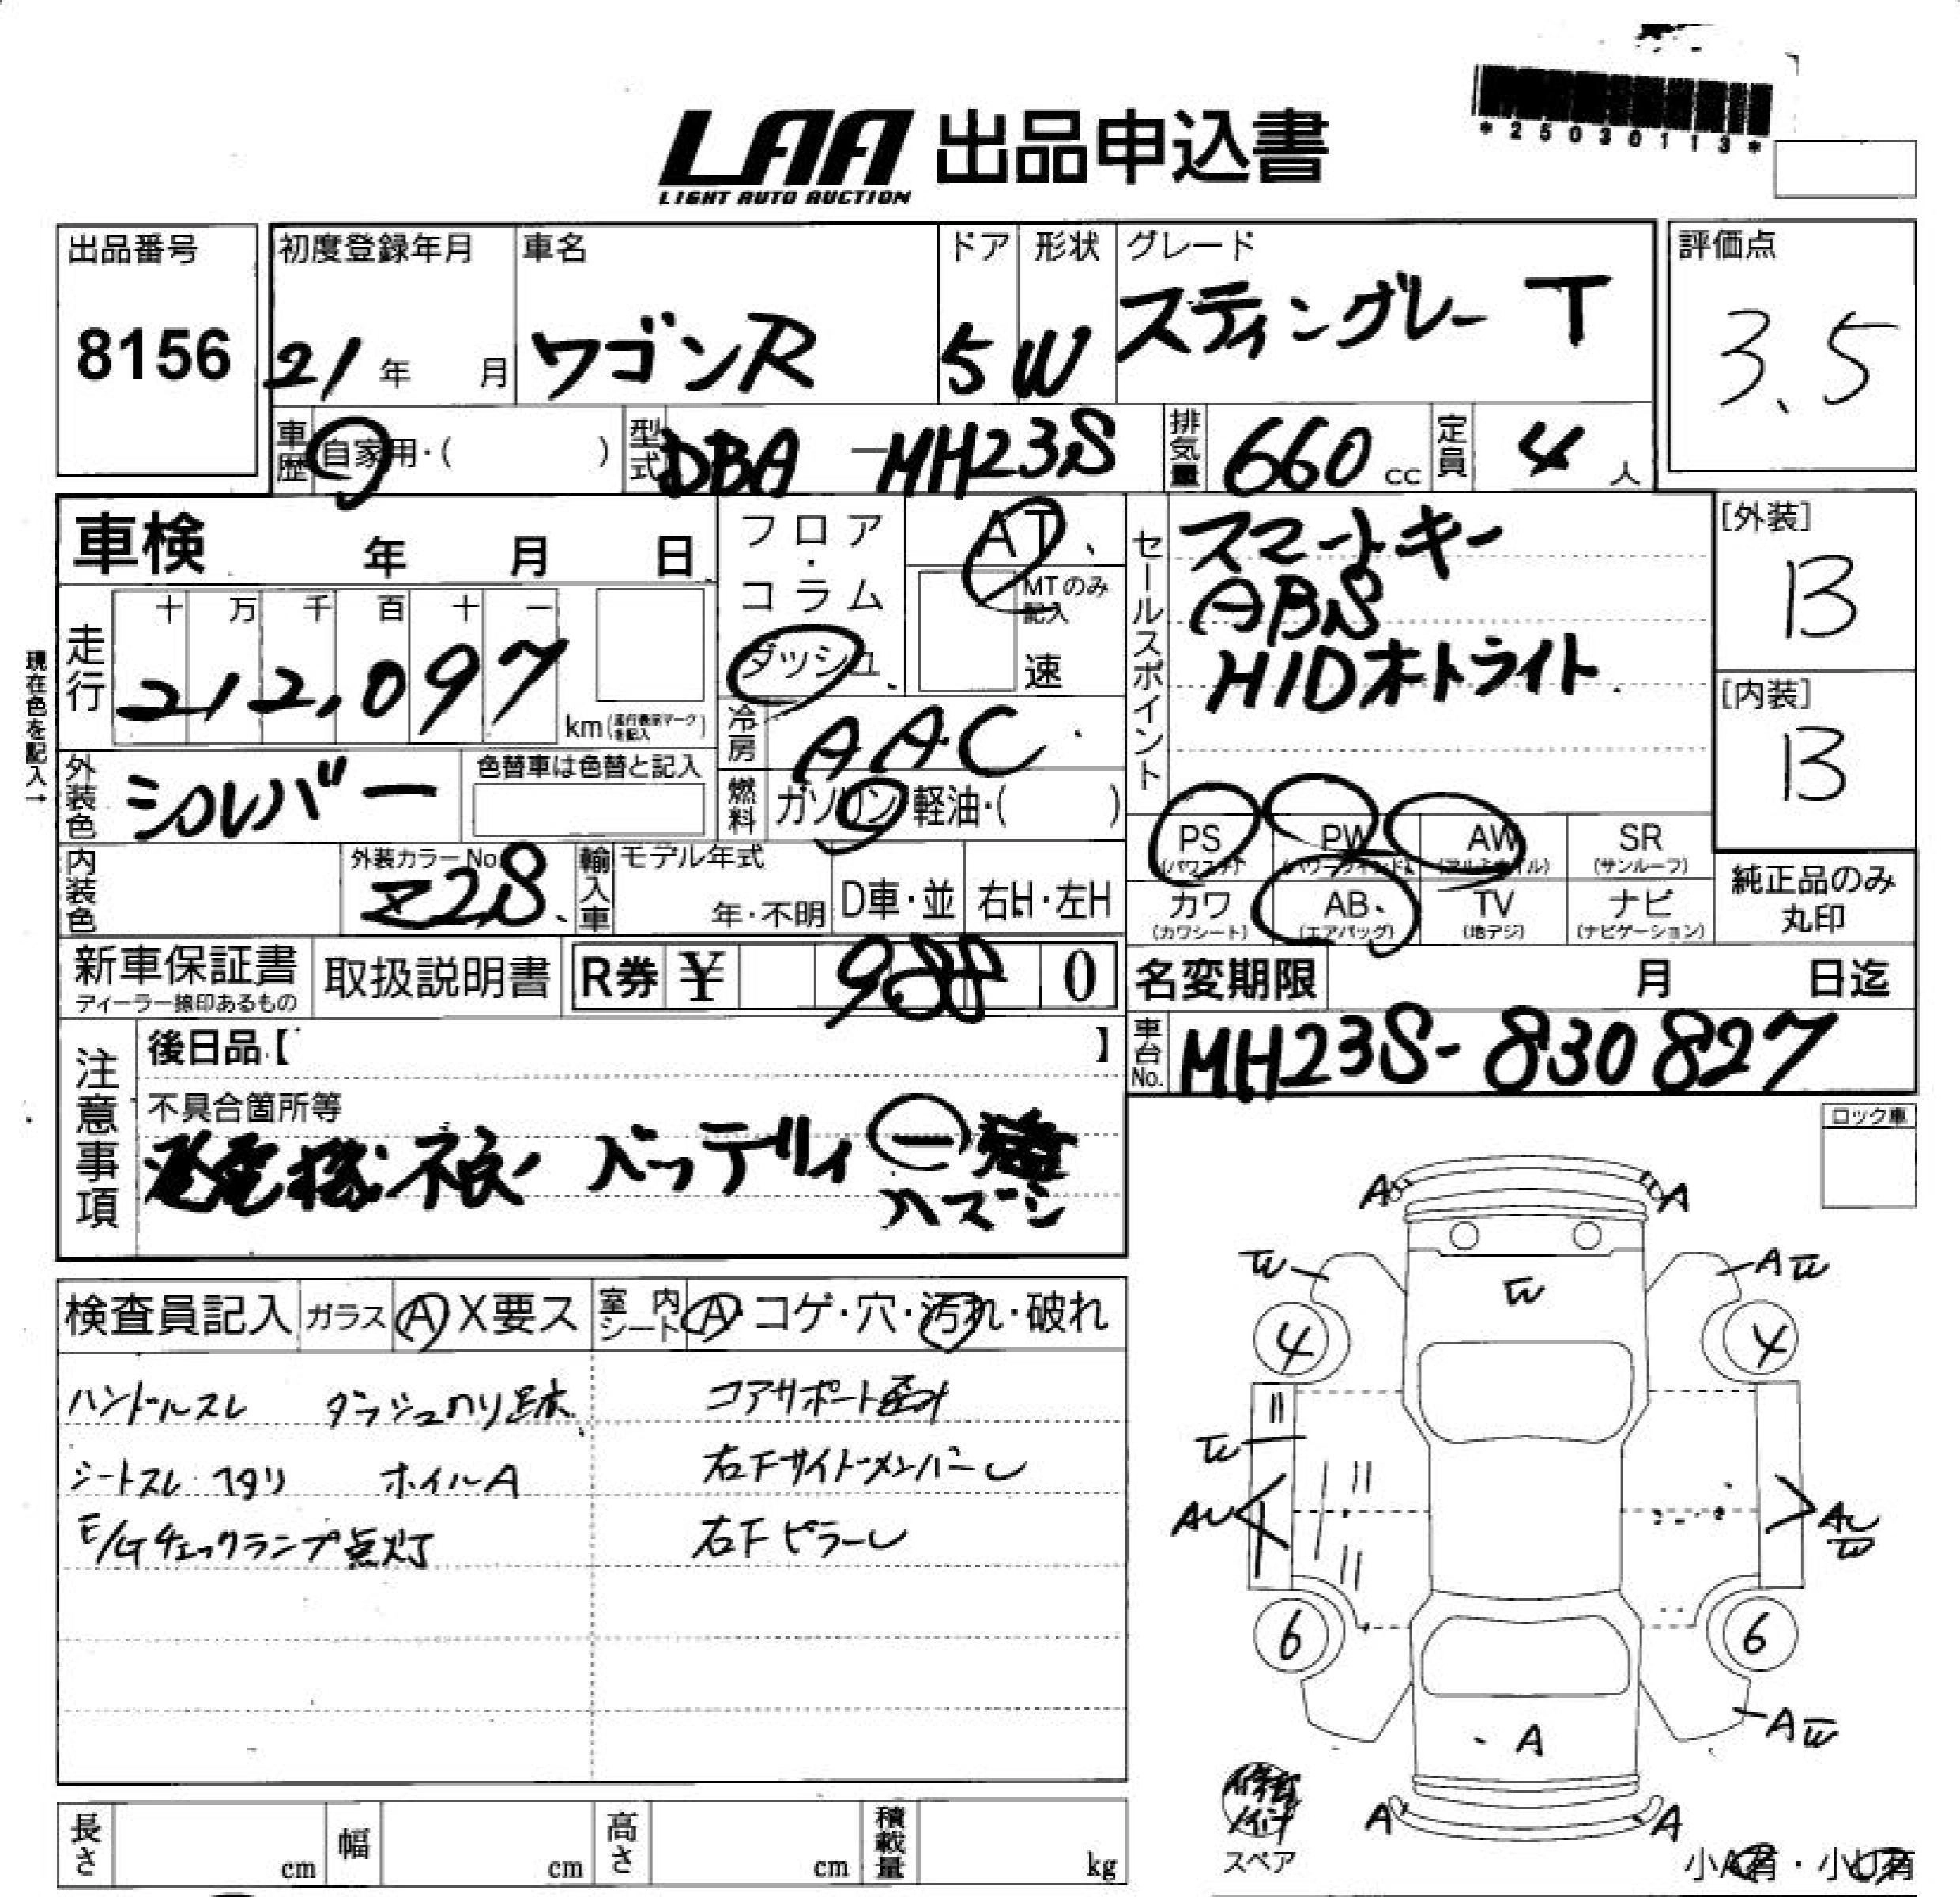 *25030113*
LAA 出品申込書
LIGHT AUTO AUCTION
出品番号 初度登録年月 車名 ドア 形状 グレード 評価点
8156 21年 月 ワゴンR 5 W スティングレー T 3.5
車歴 自家用・( ) 型式 DBA-MH23S 排気量 660cc 定員 4人
車検 年 月 日
フロア・コラム ダッシュ
AT
MTのみ記入
速
セールスポイント
スマートキー
ABS
HIDオートライト
[外装]
B
[内装]
B
現在色を記入→
走行 十 万 千 百 十 一
212,097 km(走行表示マークを記入)
冷房 AAC
外装色 シルバー 色替車は色替と記入
燃料 ガソリン 軽油・( )
PS AW SR
PW
(パワステ) (パワーウィンド, (アルミホイル) (サンルーフ)
カワ AB TV ナビ
(カワシート) (エアバッグ) (地デジ) (ナビゲーション)
純正品のみ
丸印
内装色 外装カラーNo. Z2S 輸入車 モデル年式
年・不明 D車・並 右H・左H
新車保証書 取扱説明書 R券 ¥ 0
ディーラー捺印あるもの
名変期限 月 日迄
車台No. MH23S-830827
注意事項
後日品【 】
不具合箇所等
発電機不良 バッテリィ ー
ハズシ
ロック車
検査員記入 ガラス A X要ス 室内シート A・コゲ・穴・汚れ・破れ
ハンドルスレ ダッシュのり跡 コアサポート歪み
シートスレ ヘタリ ホイルA 右Fサイドメンバーし
E/Gチェックランプ点灯 右Fピラーし
A A
W AW
W
4 4
W
AU AU
W
6 6
AW
A
A A
スペア
小A有・小U有
長さ cm 幅 cm 高さ cm 積載量 kg